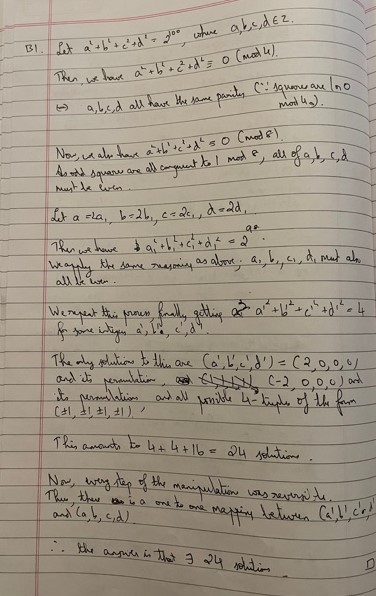 B1. Let a²+b²+c²+d² = 2¹⁰⁰, where a,b,c,d ∈ Z.
Then, we have a²+b²+c²+d² ≡ 0 (mod 4)
⇔ a,b,c,d all have the same parities (∵ squares are 1 or 0
mod 4).
Now, we also have a²+b²+c²+d² ≡ 0 (mod 8).
As odd squares are all congruent to 1 mod 8, all of a, b, c, d
must be even.
Let a = 2a₁, b = 2b₁, c = 2c₁, d = 2d₁
Then we have a₁²+b₁²+c₁²+d₁² = 2
We apply the same reasoning as above. a₁, b₁, c₁, d₁ must also
all be even.
We repeat this process, finally getting a'²+b'²+c'²+d'² = 4
for some integers a', b', c', d'
The only solutions to this are (a',b',c',d') = (2,0,0,0)
and its permutation, (-2,0,0,0) and
its permutations and all possible 4-tuples of the form
(±1, ±1, ±1, ±1)
This amounts to 4+4+16 = 24 solutions.
Now, every step of the manipulation was reversible.
Thus, there is a one to one mapping between (a',b',c',d')
and (a,b,c,d)
∴ the answer is that ∃ 24 solutions